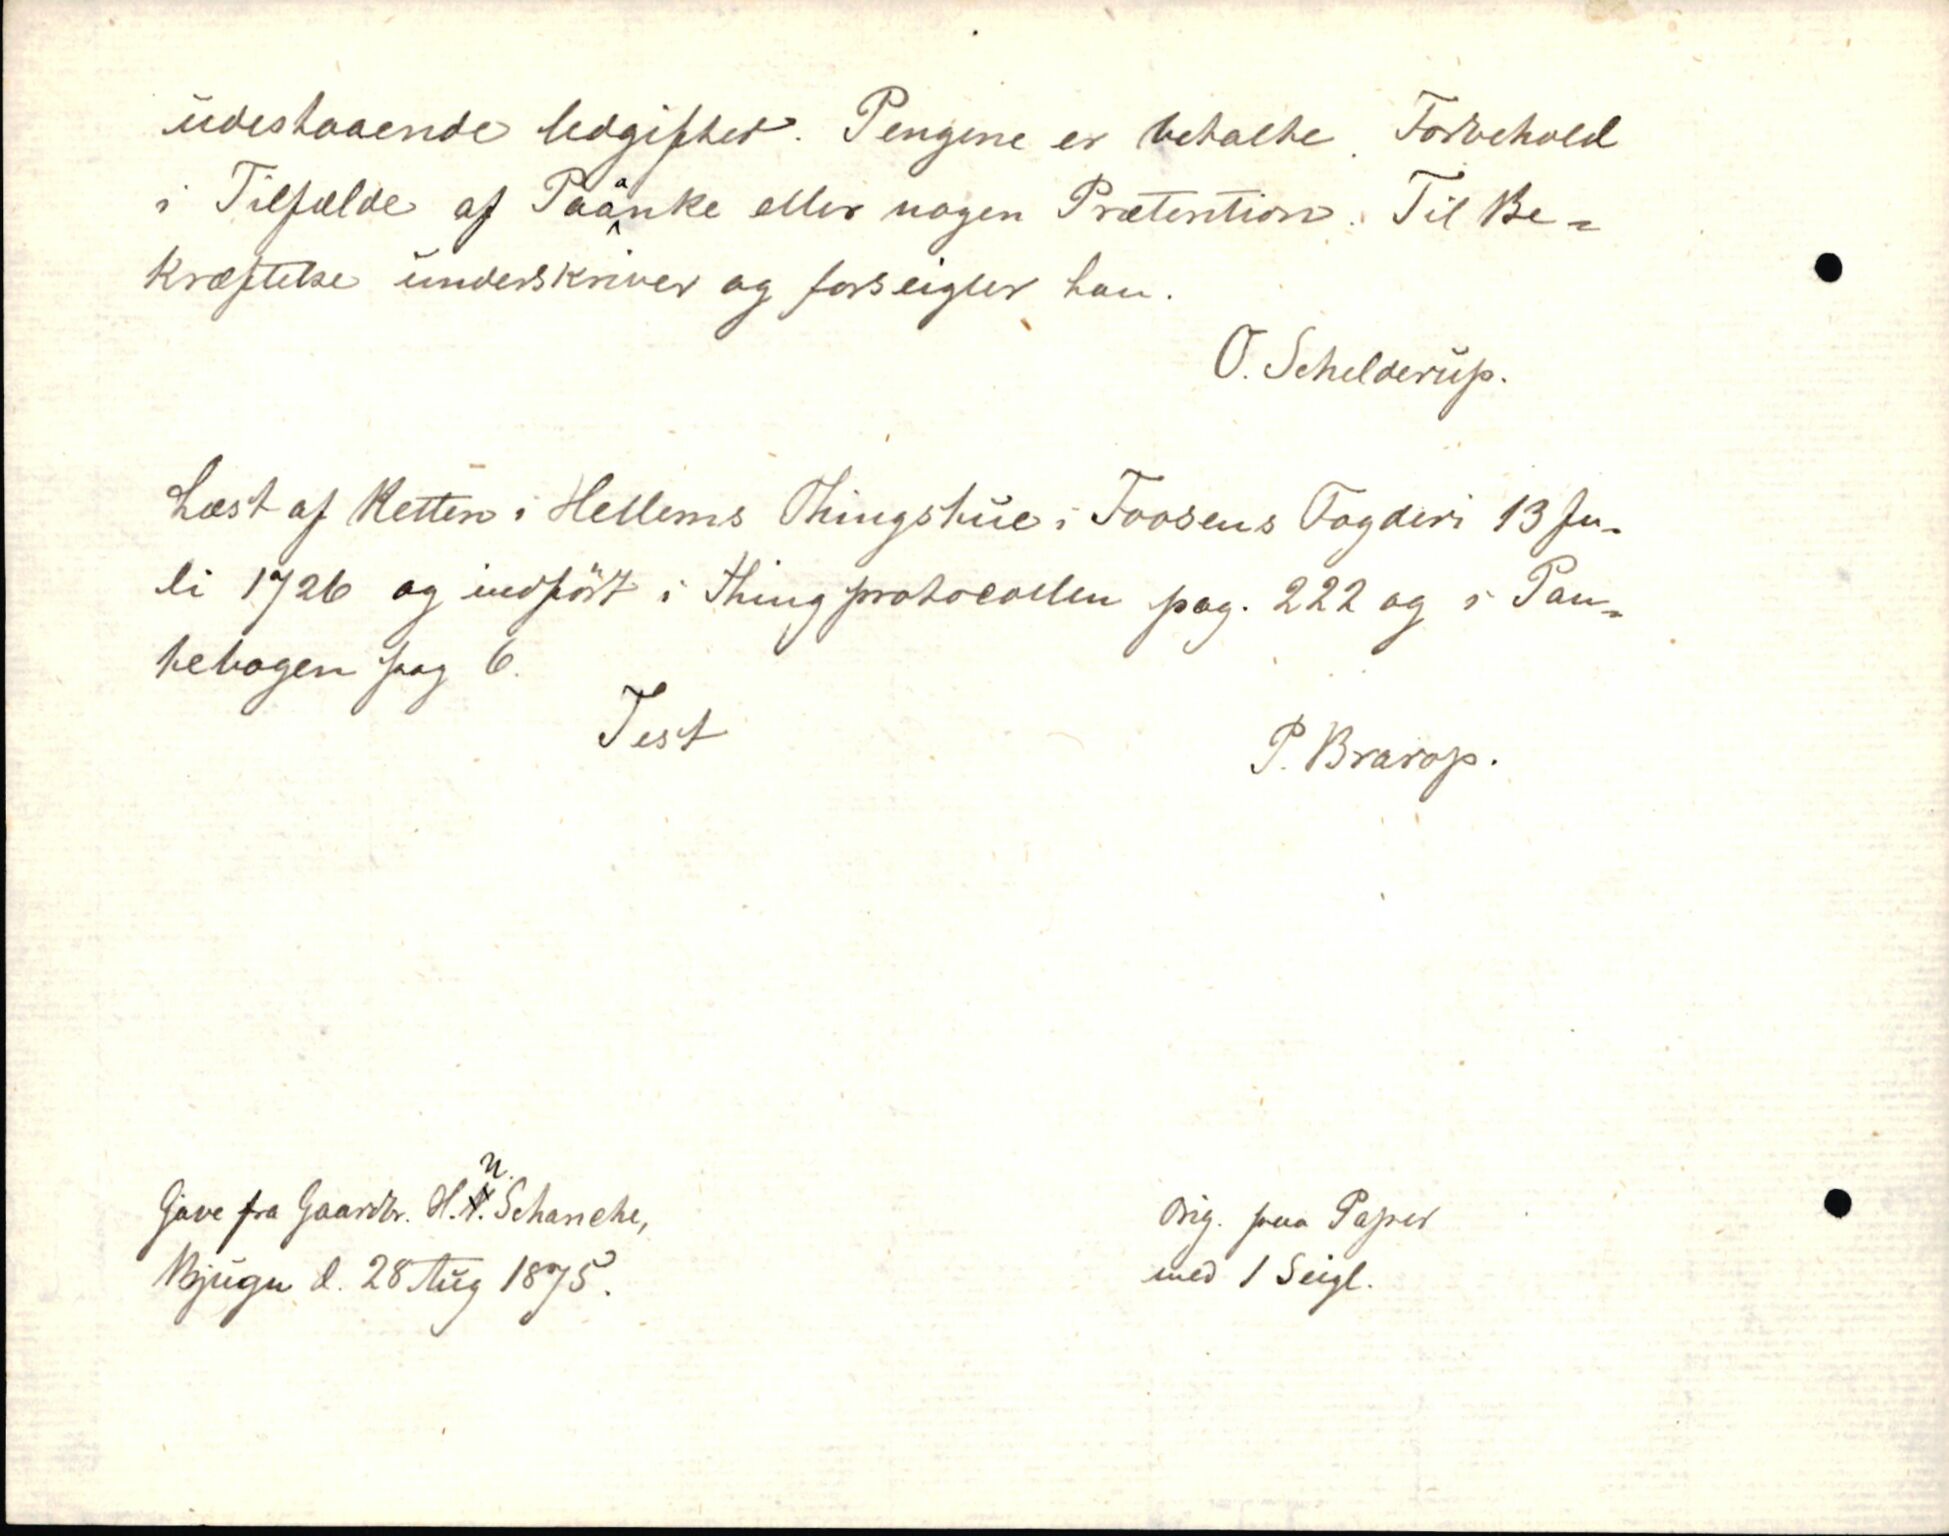 udestaaende Udgifter. Pengene er betalte. Forbehold
i Tilfælde af Paaanke eller nogen Prætention. Til Be=
kræftelse underskriver og forseigler han.
O. Schelderup.
Læst af Retten i Hellems Thingstue i Foosens Fogderi 13 Ju-
li 1726 og indført i Thingprotocollen pag. 222 og i Pan-
tebogen pag 6.
Test
P. Brarop.
Gave fra Gaardbr. H. N. Schanche,
Bjugn d. 28 Aug 1875.
Orig. paa Papir
med 1 Seigl.